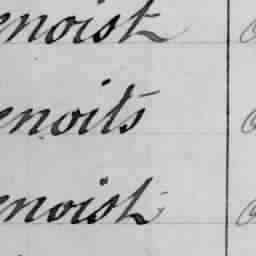 enoist
enoits
enoist